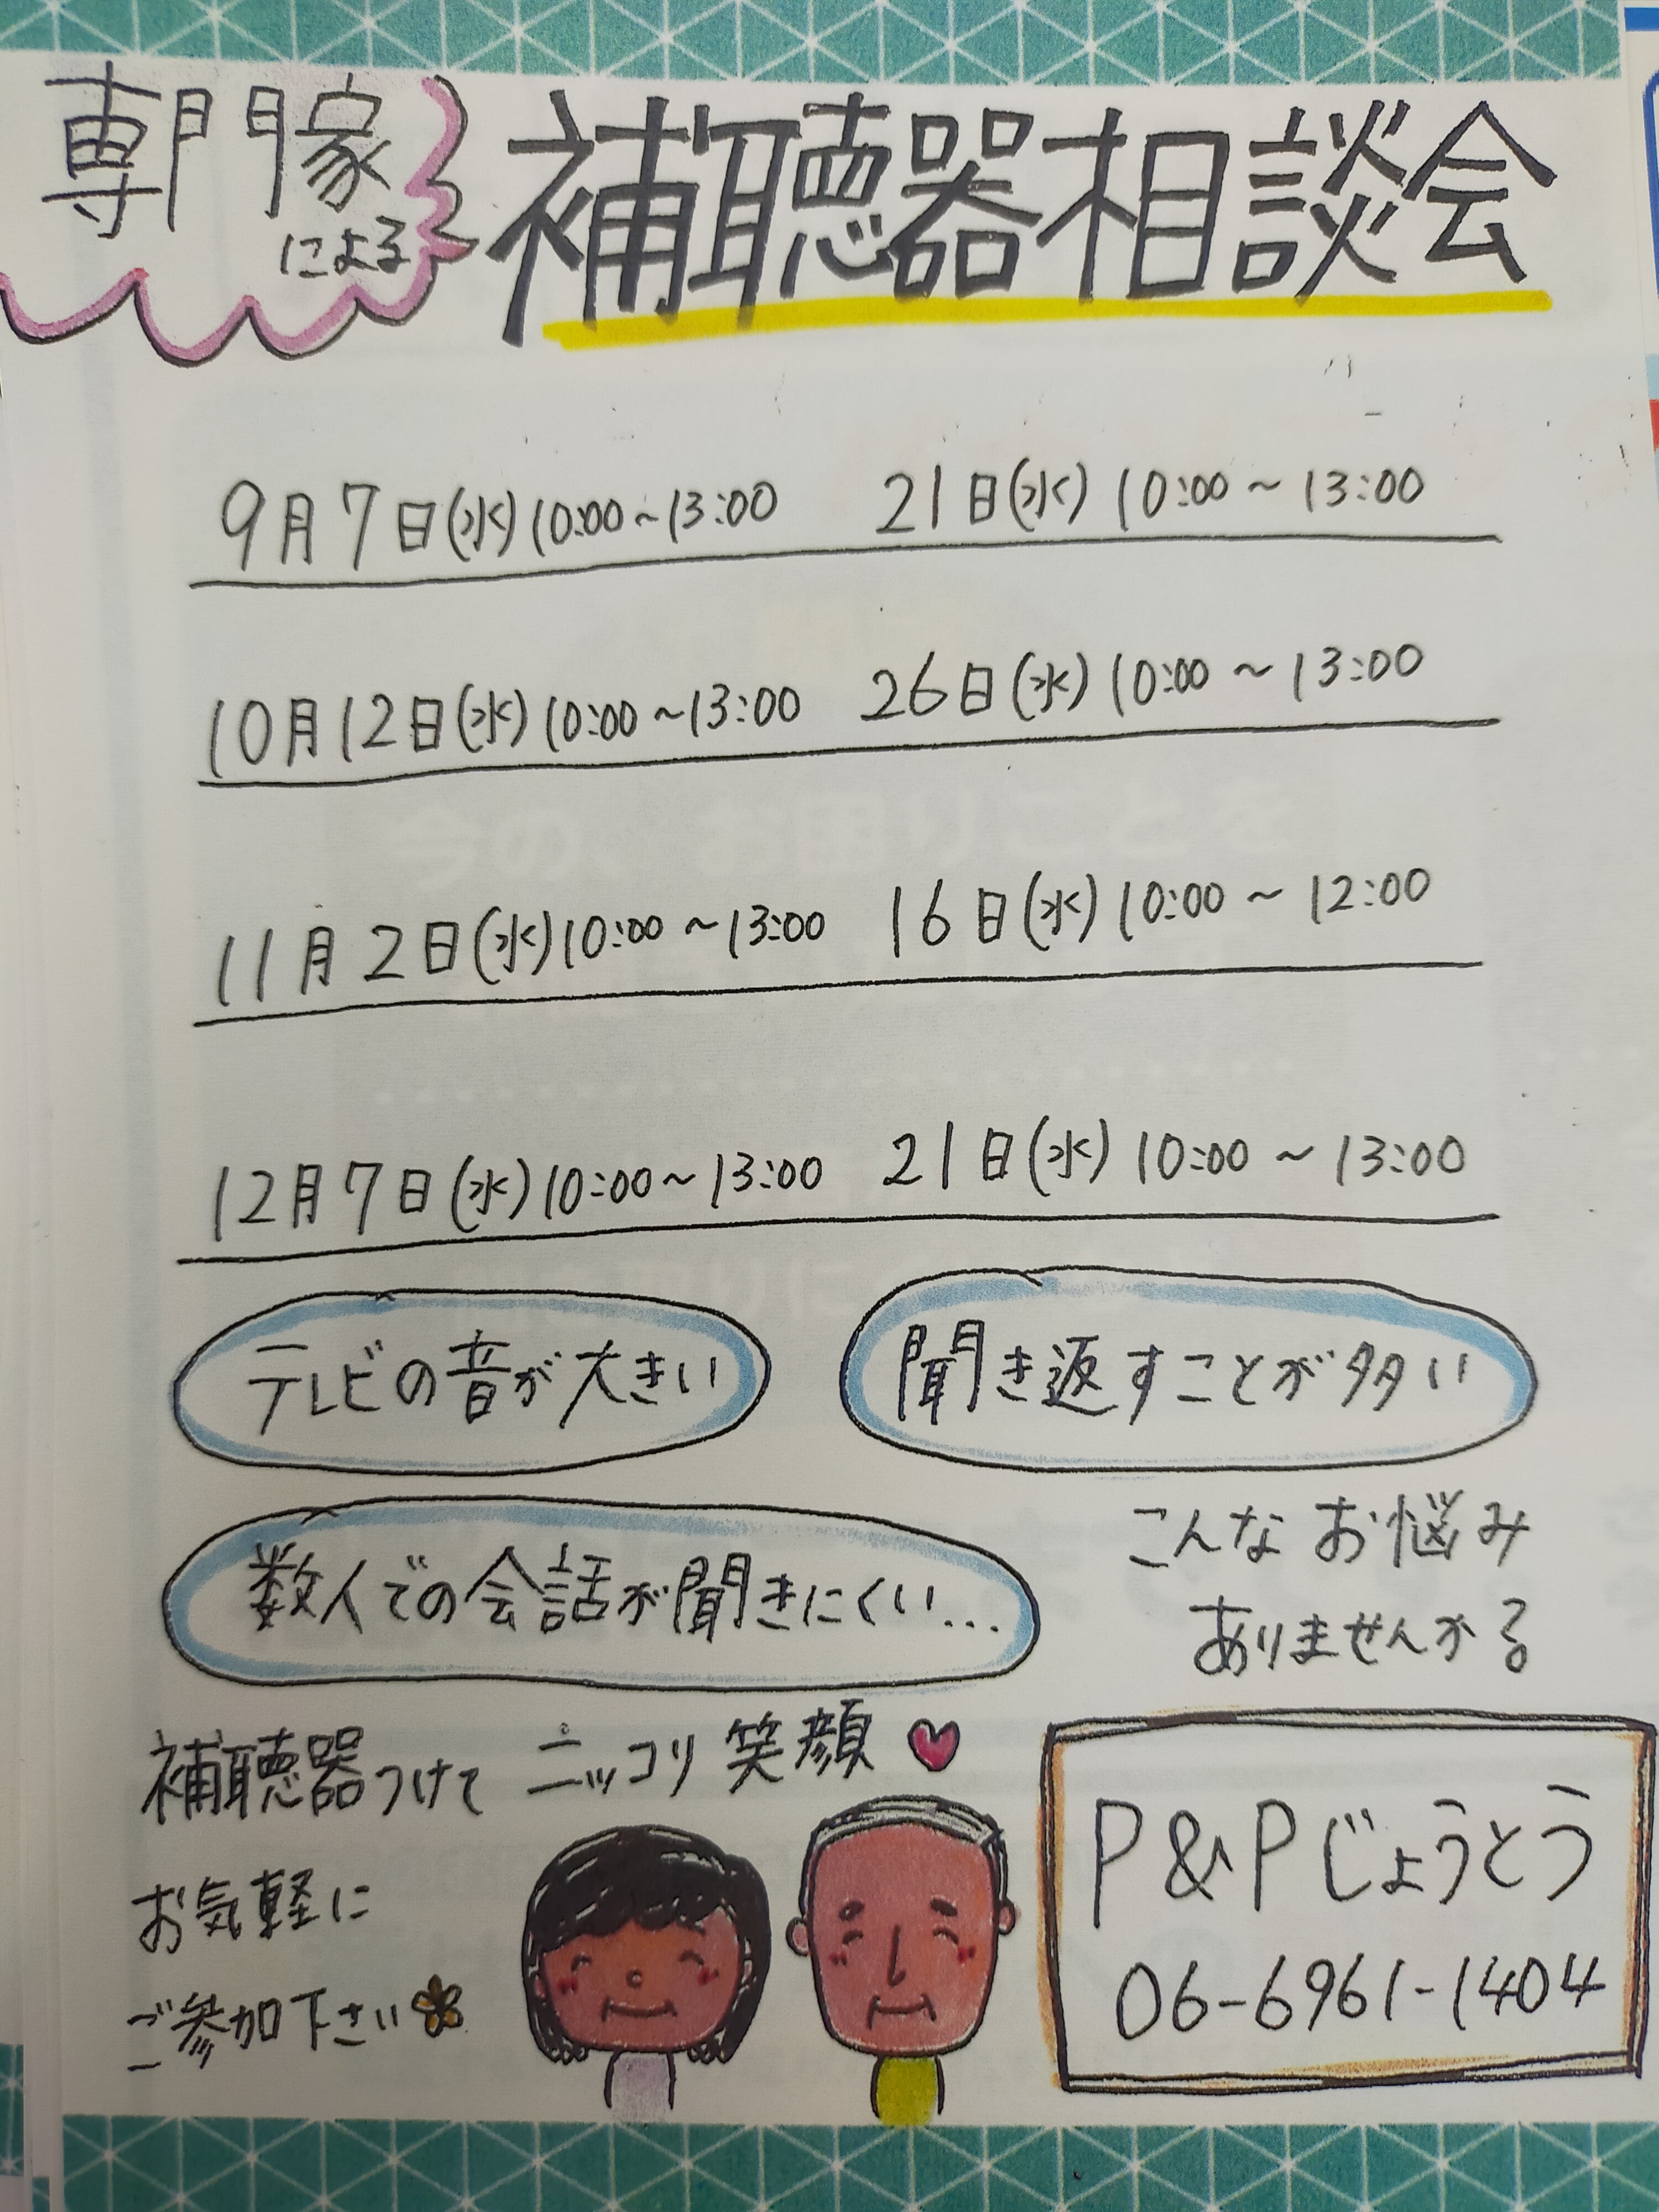 専門家
による
補聴器相談会
9月7日(水)10:00~13:00 21日(水)10:00~13:00
10月12日(水)10:00~13:00 26日(水)10:00~13:00
11月2日(水)10:00~13:00 16日(水)10:00~12:00
12月7日(水)10:00~13:00 21日(水)10:00~13:00
テレビの音が大きい
聞き返すことが多い
数人での会話が聞きにくい...
こんなお悩み
ありませんか?
補聴器つけて ニッコリ笑顔
お気軽に
ご参加下さい
P&Pじょうとう
06-6961-1404